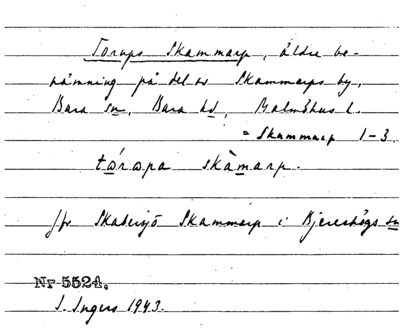 Torups Skammarp, äldre be-
nämning på del av Skammarps by,
Bara sn, Bara hd, Malmöhus l.
= Skammarp 1-3.
tòrəpa skàmarp.
Jfr Skabersjö Skammarp i Bjereshögs sn
Nr 5524.
I. Ingers 1943.